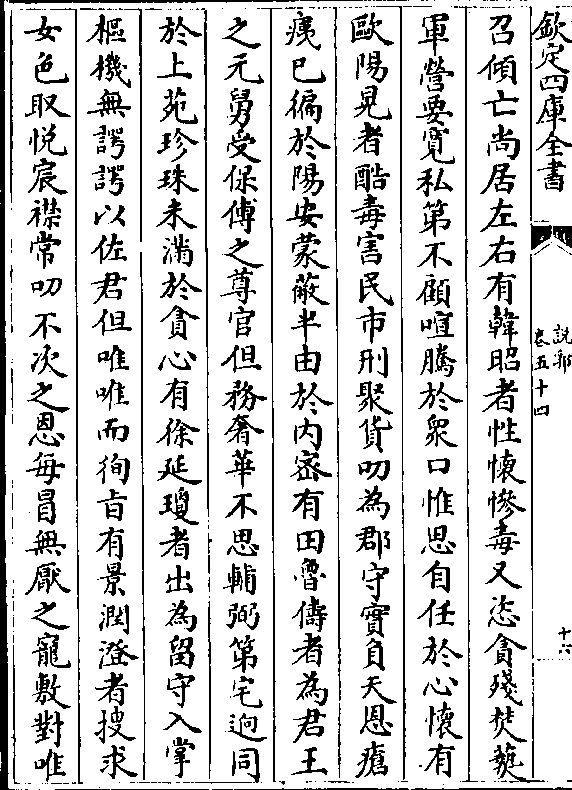 欽定四庫全書
說郛
卷五十四
十六
召傾亡尚居左右有韓昭者性懷慘毒又恣貪殘焚爇
軍營要寛私第不顧喧騰於衆口惟思自任於心懷有
歐陽晃者酷毒害民市刑聚貨叨為郡守實負天恩瘡
痍已徧於陽安蒙蔽半由於内密有田魯儔者為君王
之元舅受保傅之尊官但務奢華不思輔弼第宅逈同
於上苑珍珠未滿於貪心有徐延瓊者出為留守入掌
樞機無諤諤以佐君但唯唯而徇㫖有景潤澄者搜求
女色取悅宸襟常叨不次之恩每冒無厭之寵敷對唯